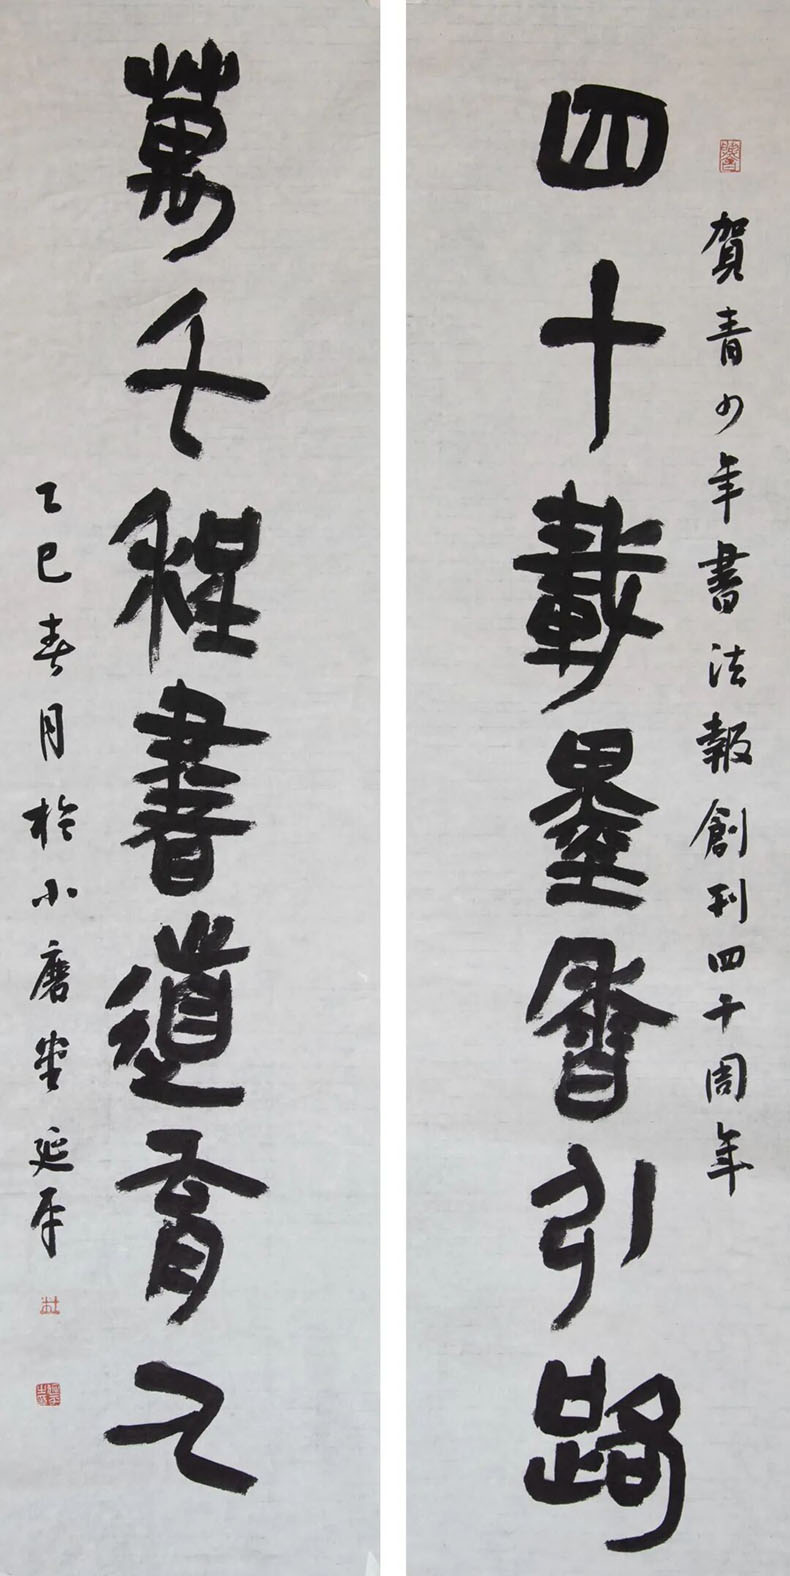 賀青少年書法報創刊四十周年
四十載墨香引路
萬千程書道育人
乙巳春月於小磨堂延平
杜